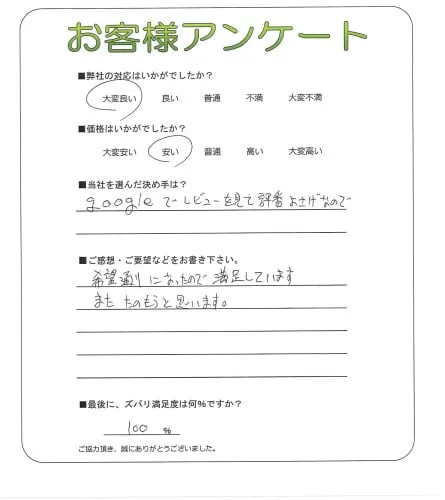 お客様アンケート
■弊社の対応はいかがでしたか？
大変良い 良い 普通 不満 大変不満
■価格はいかがでしたか？
大変安い 安い 普通 高い 大変高い
■当社を選んだ決め手は？
googleでレビューを見て評番よさげなので
■ご感想・ご要望などをお書き下さい。
希望通りになったので満足しています
また たのもうと思います。
■最後に、ズバリ満足度は何%ですか？
100 %
ご協力頂き、誠にありがとうございました。